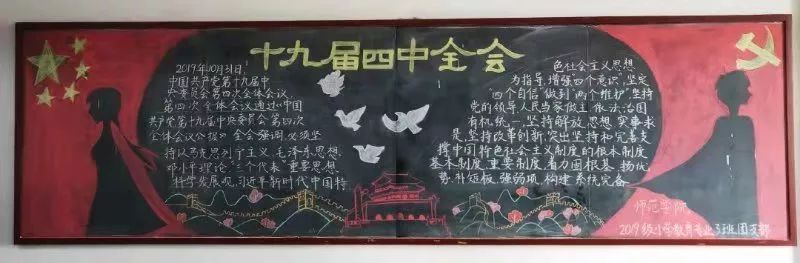 十九届四中全会
2019年10月31日,
中国共产党第十九届中
央委员会第四次全体会议,
第四次全体会议通过《中国
共产党第十九届中央委员会第四次
全体会议公报》 全会强调,必须坚
持以马克思列宁主义、毛泽东思想、
邓小平理论、“三个代表”重要思想、
科学发展观、习近平新时代中国特
色社会主义思想
为指导,增强“四个意识”,坚定
“四个自信”,做到“两个维护”,坚持
党的领导、人民当家做主、依法治国
有机统一,坚持解放思想、实事求
是,坚持改革创新,突出坚持和完善支
撑中国特色社会主义制度的根本制度、
基本制度、重要制度,着力固根基、扬优
势、补短板、强弱项,构建系统完备
师范学院
2019级小学教育专业3班团支部